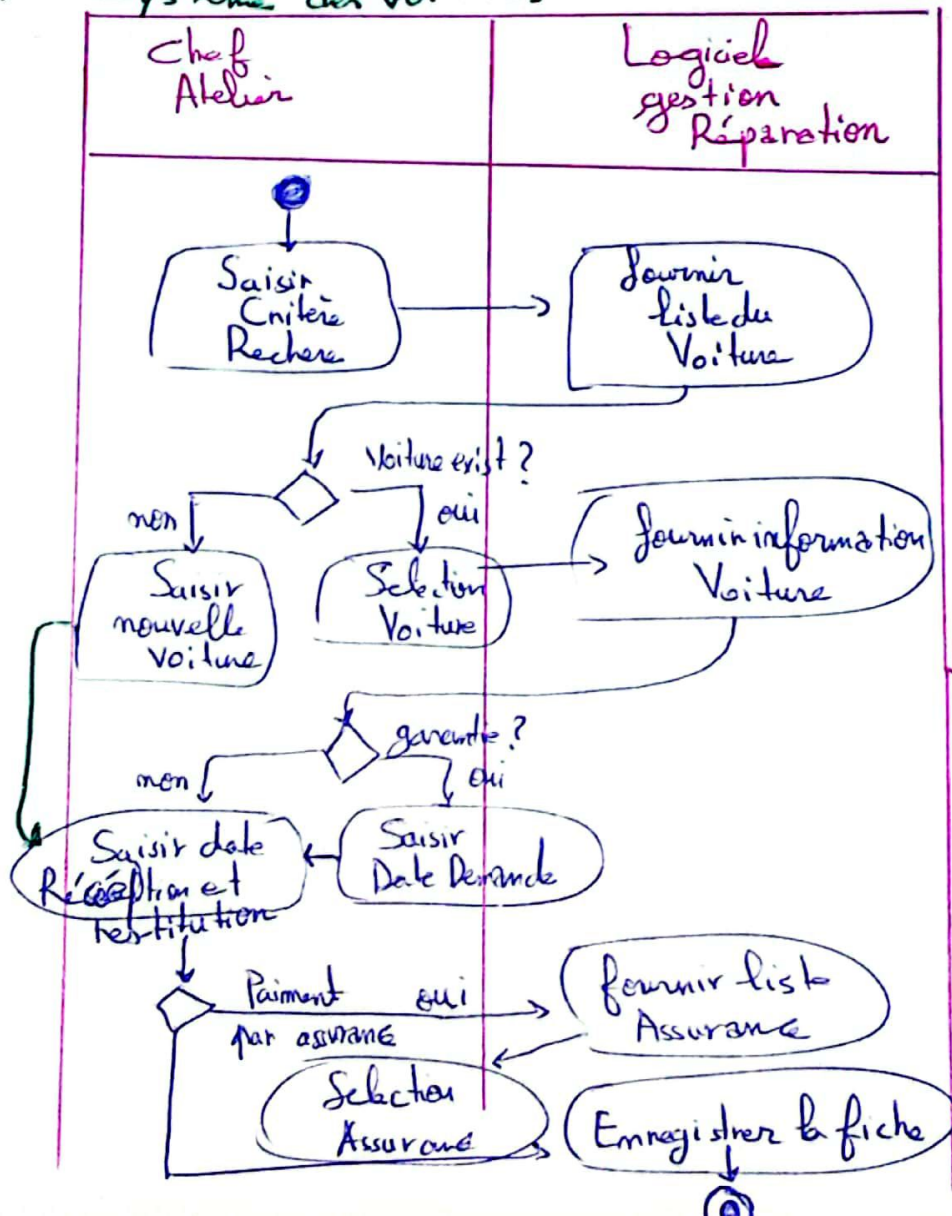 Chef
Atelier
Logiciel
gestion
Réparation
Saisir
Critère
Rechere
fournir
liste du
Voiture
Voiture exist ?
non
oui
Saisir
nouvelle
voiture
Selection
Voiture
fournir information
Voiture
garantie ?
non
oui
Saisir date
Récéption et
restitution
Saisir
Date Demande
Paiment oui
par assurance
fournir liste
Assurance
Selection
Assurance
Enregistrer la fiche